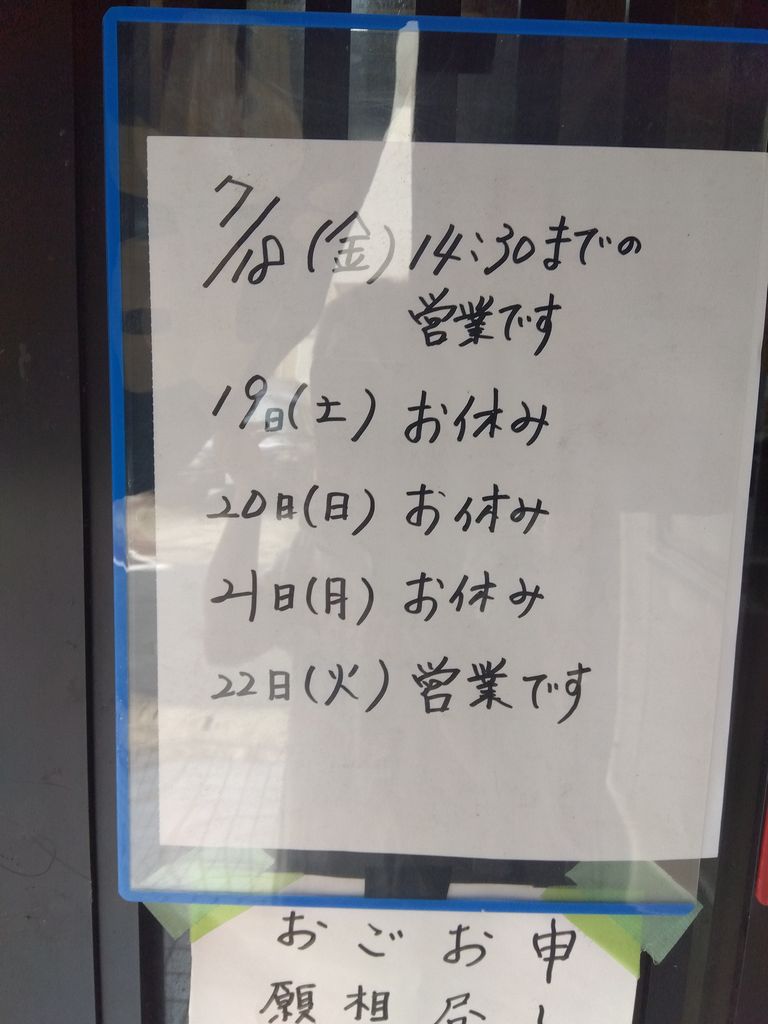 7/18(金)14:30までの
営業です
19日(土)お休み
20日(日)お休み
21日(月)お休み
22日(火)営業です
申し
お
ご相
お願